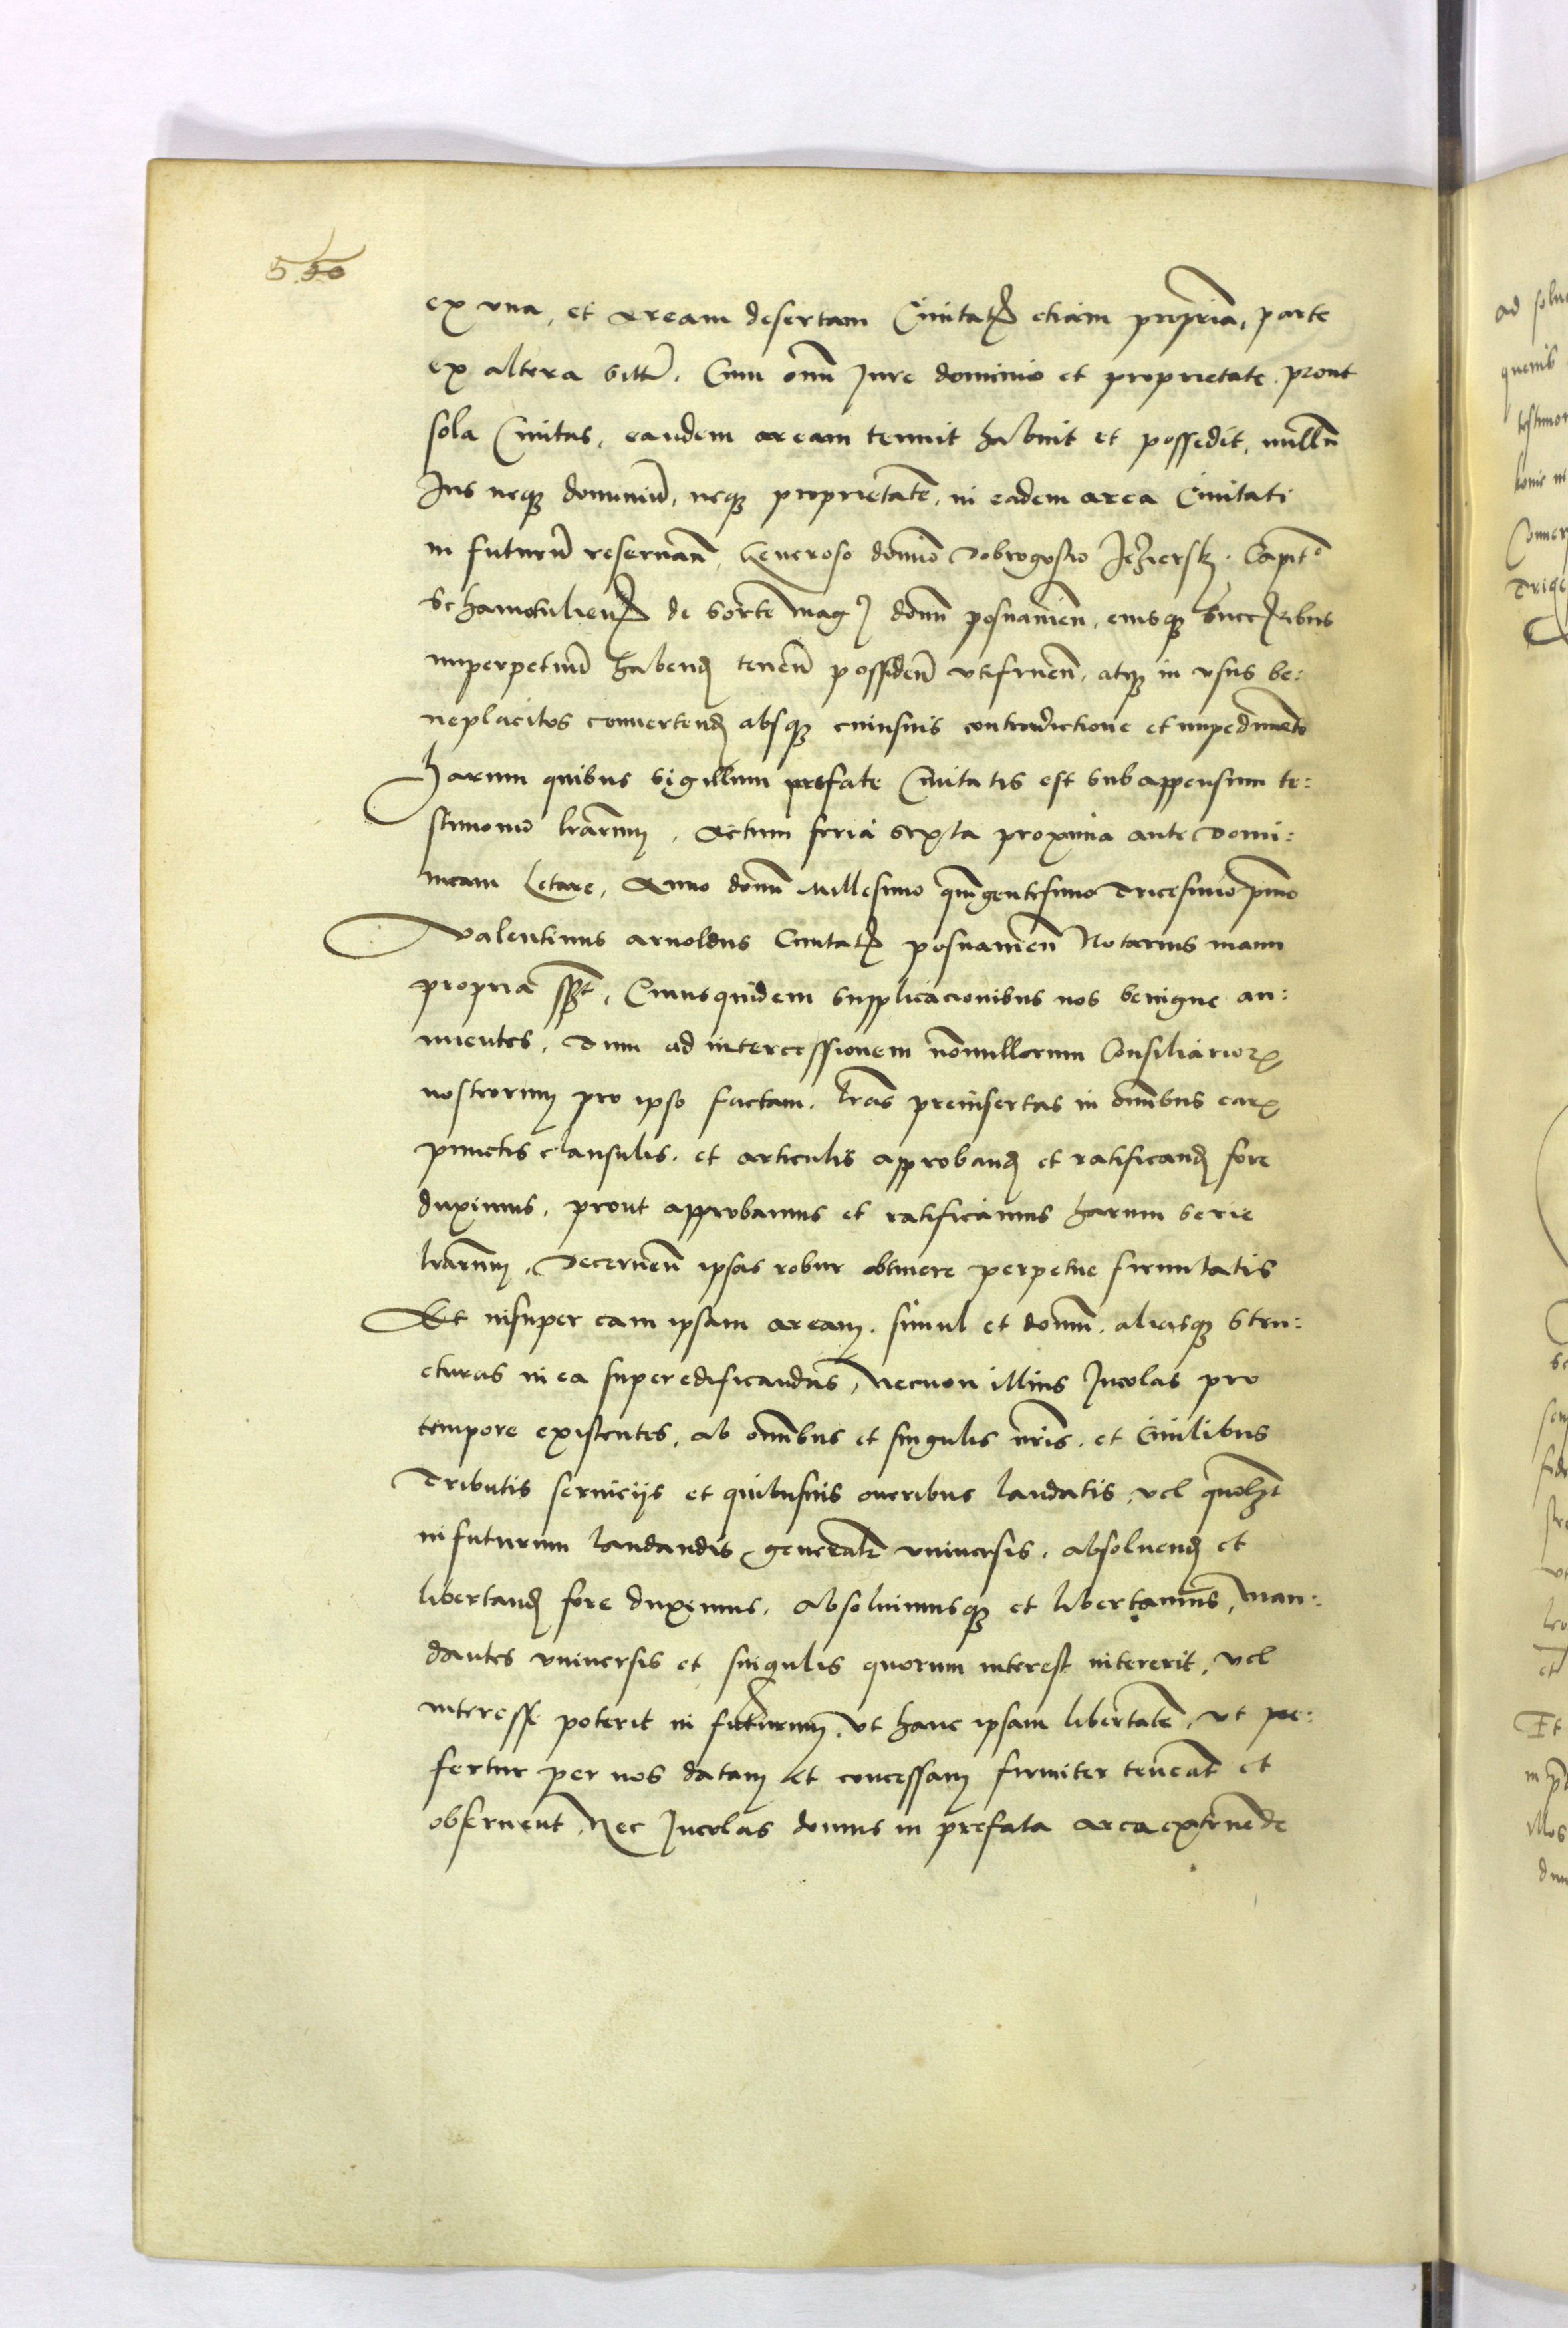 550
ex vna, et Aream desertam Ciuitatis etiam propriam, parte
ex altera sitam. Cum omni Jure dominio et proprietate prout
sola Ciuitas, eandem aream tenuit habuit et possedit, nullum
Jus neque dominium, neque proprietatem, in eadem area Ciuitati
in futurum reseruan̄, Generoso domino Dobrogostio Jezierskj Capit°
Schamotulien̄ de sorte mag domini posnanien̄, eiusque successoribus
inperpetuum habend tenen̄ possiden̄ vtifruen̄, atque in vsus be:
neplacitos conuertend absque cuiusuis contradictione et impedimento
Harum quibus Sigillum prefate Ciuitatis est subappensum te:
stimonio l̄rarum. Actum feria sexta proxima ante Domi:
nicam Letare, Anno domini Millesimo quingentesimo Tricesimo primo
Valentinus arnoldus Ciuitatis posnanien̄ Notarius manu
propria sspt, Cuiusquidem supplicacionibus nos benigne an:
nuentes, Dum ad intercessionem nonnullorum Consiliariorum
nostrorum pro ipso factam. l̄ras preinsertas in omnibus earum
punctis clausulis. et articulis approband et ratificand fore
duximus, prout approbamus et ratificamus harum serie
l̄rarum, Decernen̄ ipsas robur obtinere perpetue firmitatis
Et insuper eam ipsam aream. simul et domum, aliasque stru:
cturas in ea superedificandas, Necnon illius Jncolas pro
tempore existentes, ab omnibus et singulis n̄ris. et Ciuilibus
Tributis seruicijs et quibusuis oneribus laudatis, vel quolzt
in futurum laudandis, generalr vniuersis, absoluend et
libertand fore duximus. Absoluimusque et libertamus, Man:
dantes vniuersis et singulis quorum interest intererit, vel
interesse poterit in futurum, vt hanc ipsam libertatem, vt pre:
fertur per nos datam et concessam firmiter teneant et
obseruent, Nec Jncolas domus in prefata area extruende